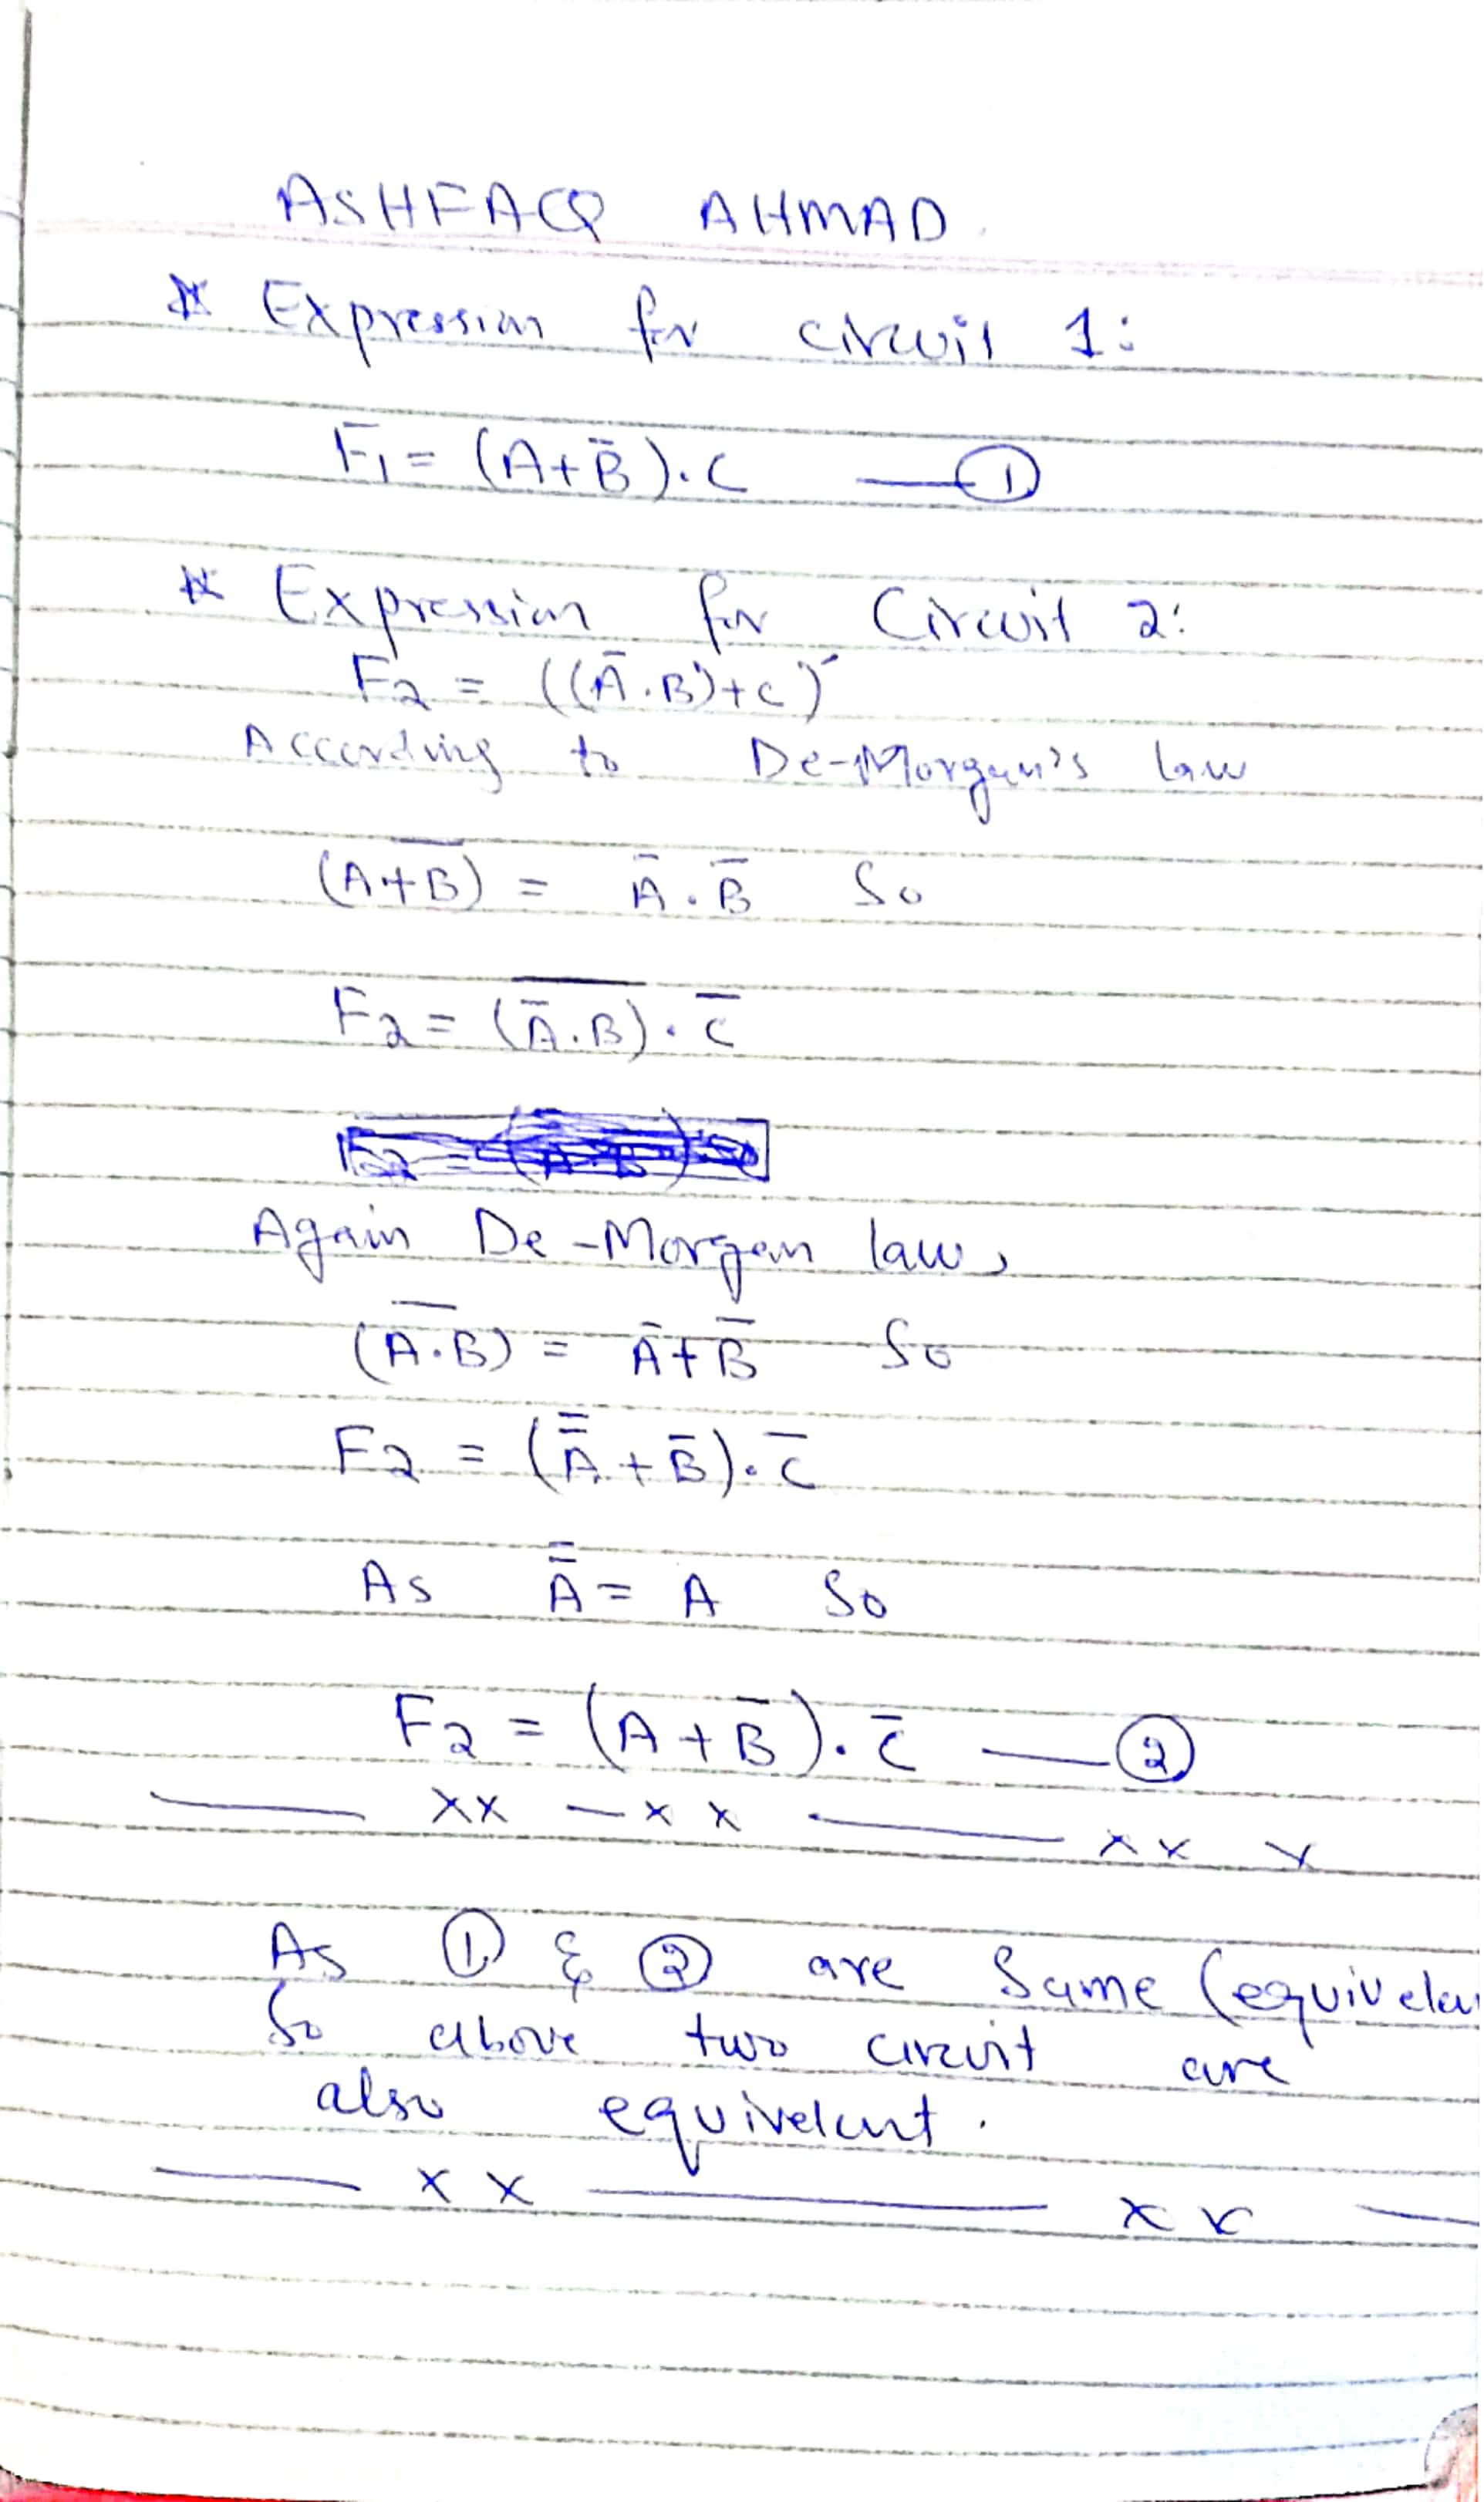 ASHFAQ AHMAD
* Expression for circuit 1:
F₁ = (A+B̄).C — ①
* Expression for Circuit 2:
F₂ = ((Ā.B)+C)'
According to De-Morgan's law
(A̅+̅B̅) = Ā.B̄ So
F₂ = (̅Ā̅.̅B̅)̅.C̄
Again De-Morgan law,
(A̅.̅B̅) = Ā+B̄ So
F₂ = (A̿+B̄).C̄
As A̿ = A So
F₂ = (A+B̄).C̄ — ②
— xx — x x — x x x
As ① & ② are Same (equivelen
So above two circuit are
also equivelent.
— x x — x x —